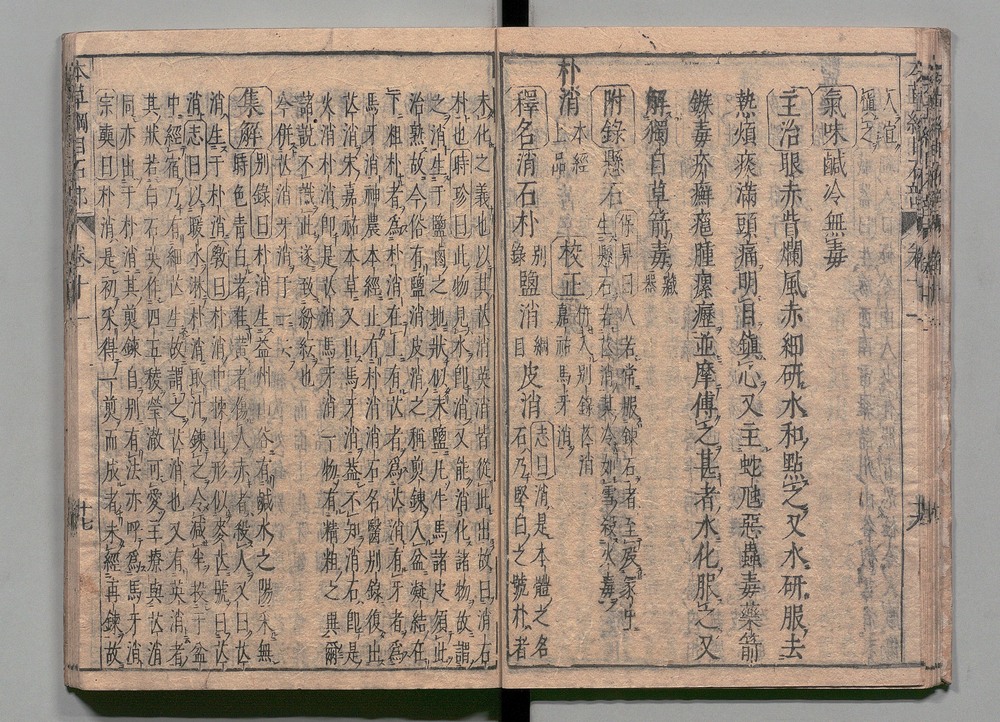 人宜
慎之
氣味鹹冷無毒
主治眼赤眥爛風赤細研水和點之又水研服去
熱煩痰滿頭痛明目鎮心又主蛇虺惡蟲毒藥箭
鏃毒疥癬疽腫瘰癧並摩傅之甚者水化服之又
解獨自草箭毒藏器
附錄懸石保昇曰人若常服鍊石者至
生懸石
朴消本經上品校正併入別錄芒消嘉祐馬牙消
釋名消石朴別錄鹽消綱目皮消志曰消是本體之名石乃堅白之號朴者
未化之義也以其芒消英消皆從此出故曰消石
朴也時珍曰此物見水即消又能消化諸物故謂
之消生于鹽鹵之地狀似末鹽凡牛馬諸皮須此
治熟故今俗有鹽消皮消之稱煎鍊入盆凝結在
下粗朴者為朴消在上有芒者為芒消有牙者為
馬牙消神農本經止有朴消消石名醫別錄復出
芒消宋嘉祐本草又出馬牙消蓋不知消石即是
火消朴消即是芒消馬牙消一物有精粗之異爾
諸說不識此遂致紛紜也
今併芒消牙消于一
集解別錄曰朴消生益州山谷有鹹水之陽采無
時色青白者佳黃者傷人赤者殺人又曰芒
消生于朴消斅曰朴消中煉出形似麥芒號曰芒
消志曰以暖水淋朴消取汁鍊之令減半投于盆
中經宿乃有細芒生故謂之芒消也又有英消者
其狀若白石英作四五稜瑩澈可愛主療與芒消
同亦出于朴消其煎鍊自別有法亦呼為馬牙消
宗奭曰朴消是初采得一煎而成者未經再鍊故
本草綱目石部 卷十一 十七